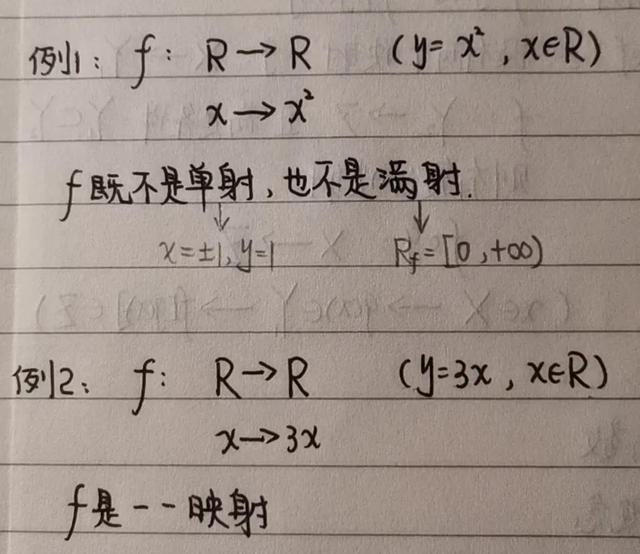 例1: f: R→R (y=x², x∈R)
x→x²
f既不是单射,也不是满射.
↓ ↓
x=±1,y=1 R_f=[0,+∞)
例2: f: R→R (y=3x, x∈R)
x→3x
f是一一映射